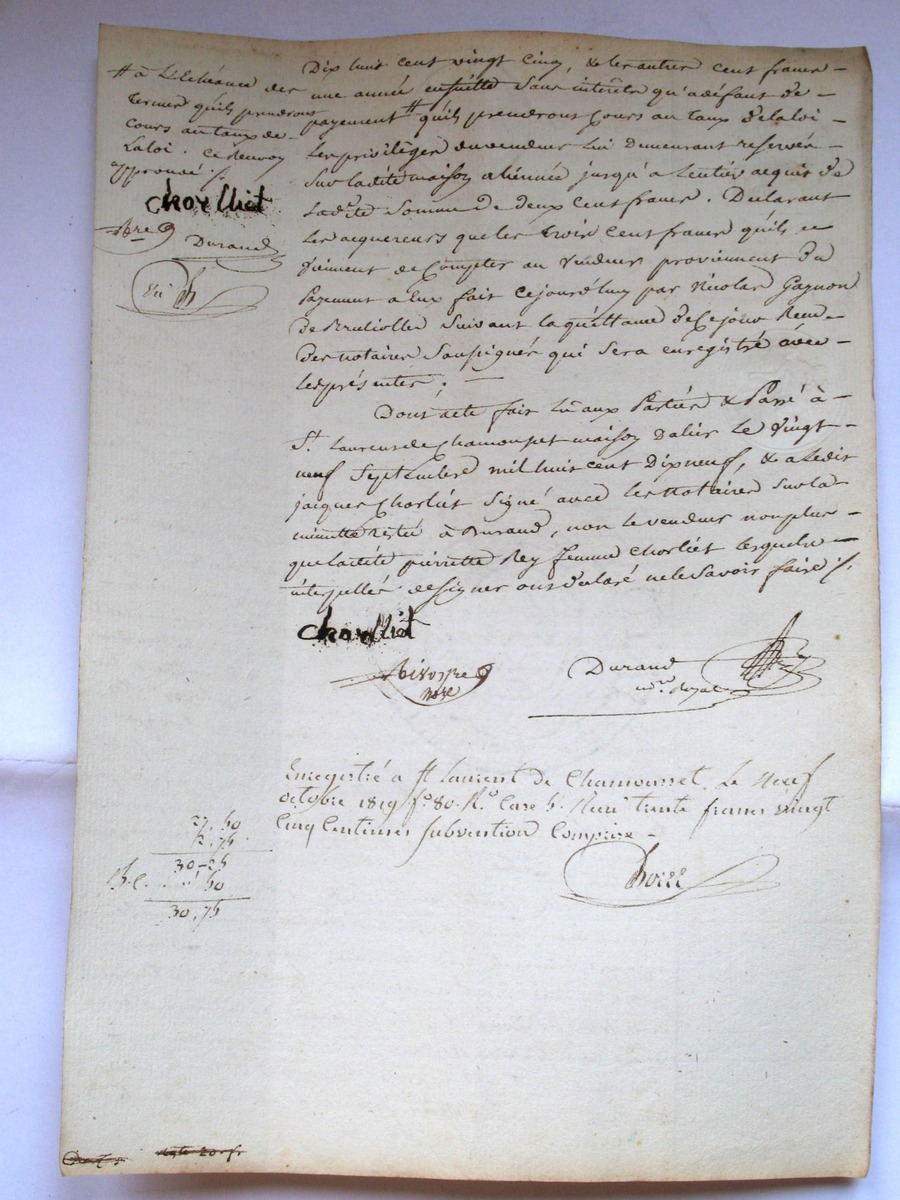 # à L'echéance des
termes quils prendront
cours au taux de
La loi. Ce Renvoy
approuvé ./.
chorlliet
Durand
Dix huit cent vingt cinq, & les autres cent francs
une année ensuitte sans interêts qu'a défaut de
payement # qu'ils prendront cours au taux de la loi
Les privilèges du vendeur lui demeurant reservés
Sur la dite maison aliennée jusqu'a Lentier acquit de
La dte Somme de deux Cent francs. Déclarant
Les acquereurs que les trois Cent francs qu'ils
viennent de Compter au Vendeur proviennent du
Payement a Eux fait cejourd'huy par Nicolas Gagnon
de Suivant la quittance de Ce jour
des notaires Soussignés qui Sera enregistré avec
Les présentes;
Dont acte fait Lû aux Parties & Passé à
St Laurent de Chamousset maison Le Vingt
neuf Septembre mil huit cent Dix neuf, & a Ledit
jacques Chorliet Signé avec Les Notaires Sur la
minutte Restée à Durand, non le vendeur non plus
que la dite pierrette Rey femme Chorliet Lesquels
interpellés de Signer ont déclaré ne le Savoir faire ./.
chorlliet
Durand
nore
nre Royal
Enregistré a St Laurent de Chamousset Le Neuf
octobre 1819 fo 80. Ro Case 6. Reçu trente francs vingt
Cinq Centimes Subvention Comprise
27,50
2,75
30-25
50
30,75